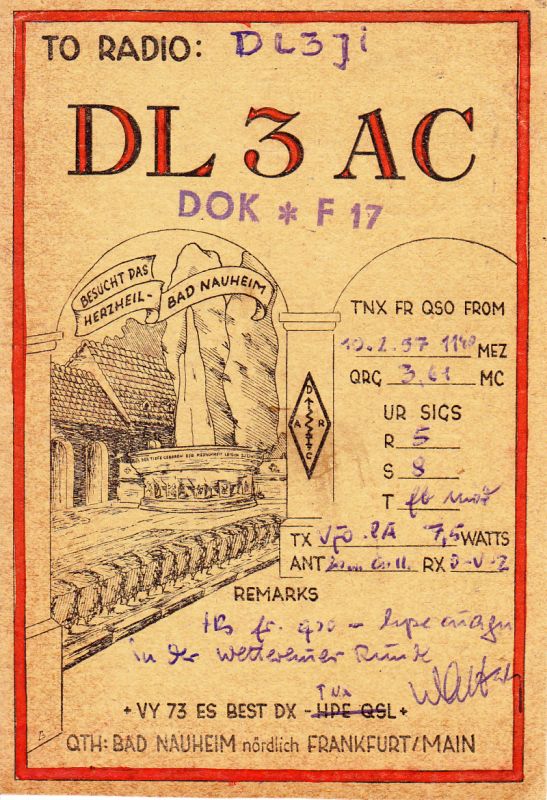 TO RADIO: DL3JI
DL 3 AC
DOK * F 17
BESUCHT DAS
HERZHEIL-
BAD NAUHEIM
TNX FR QSO FROM
10.2.57 1140 MEZ
QRG 3,61 MC
D
A R
C
UR SIGS
R 5
S 8
T fb mod
TX 7,5 WATTS
ANT RX 0-V-2
REMARKS
fr. qso - hpe cuagn
in der Wetterauer Runde
TNX
+ VY 73 ES BEST DX - HPE QSL +
QTH: BAD NAUHEIM nördlich FRANKFURT/MAIN